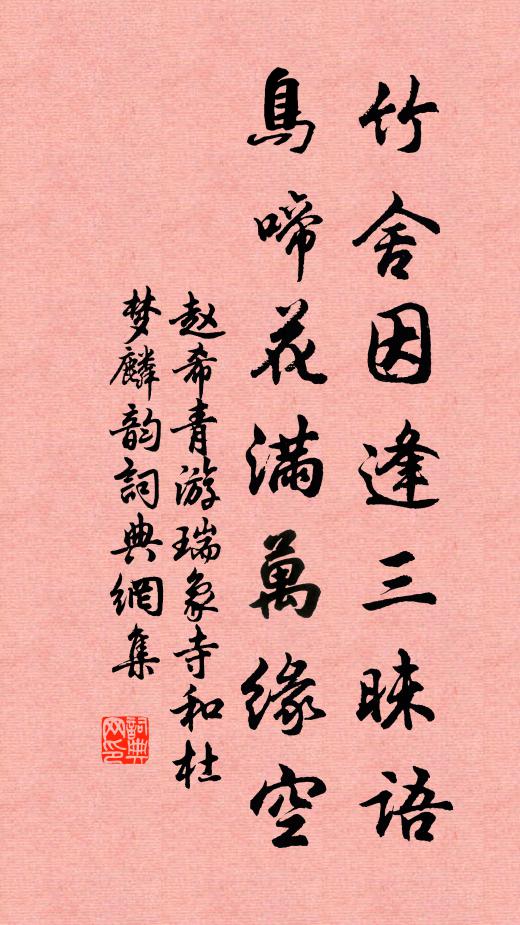 竹舍因逢三昧語
鳥啼花滿萬緣空
赵希青游瑞象寺和杜
梦麟韵詞典網集
詞典網印